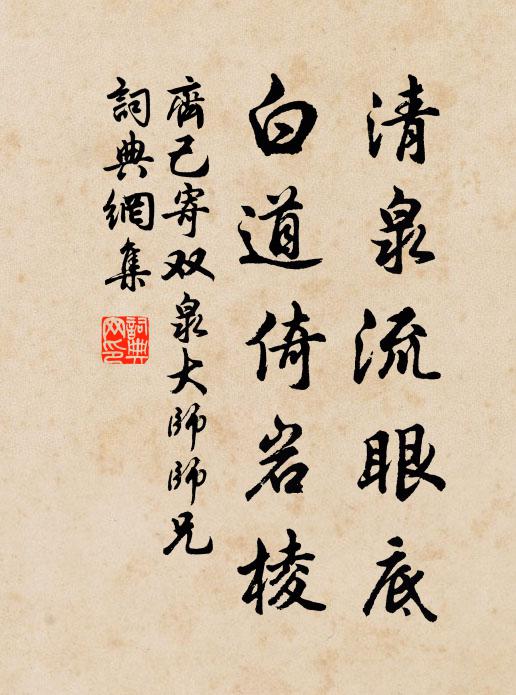 清泉流眼底
白道倚岩棱
齊己寄双泉大师师兄
詞典網集
詞典網印